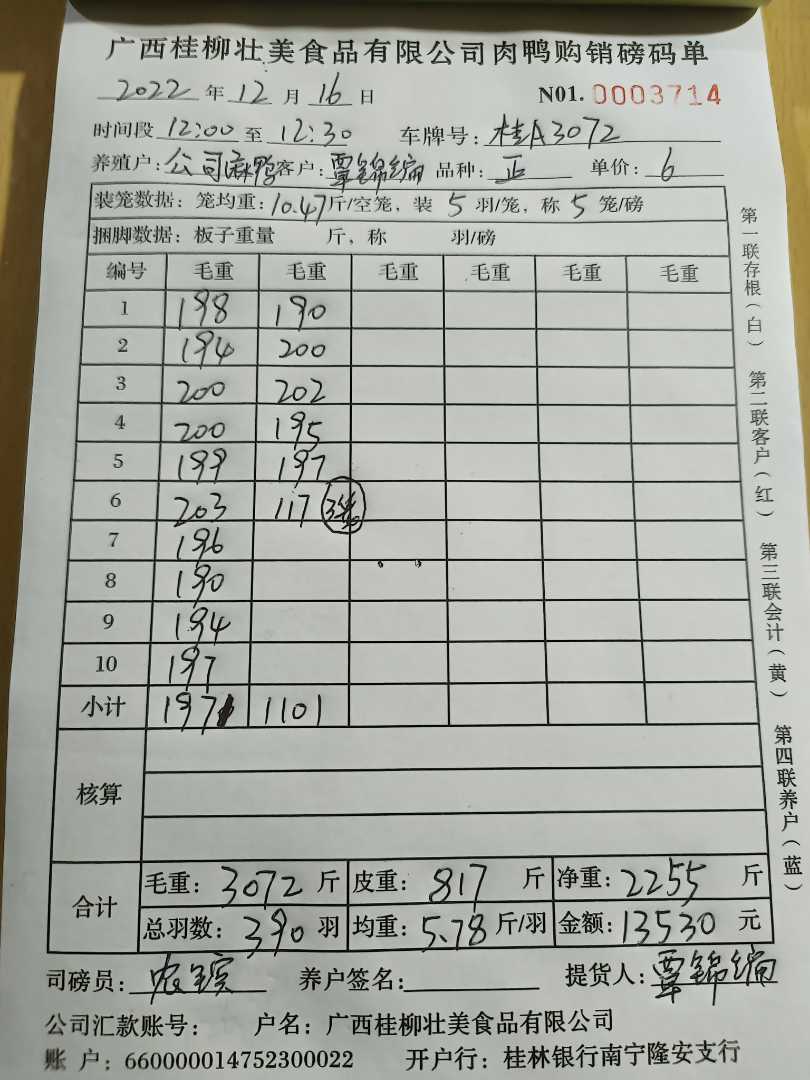 广西桂柳壮美食品有限公司肉鸭购销磅码单
2022 年 12 月 16 日 N01. 0003714
时间段 12:00 至 12:30 车牌号: 桂A3072
养殖户: 公司麻鸭 客户: 覃锦编 品种: 正 单价: 6
装笼数据: 笼均重: 10.47 斤/空笼, 装 5 羽/笼, 称 5 笼/磅
捆脚数据: 板子重量 斤, 称 羽/磅
编号 毛重 毛重 毛重 毛重 毛重 毛重
1 198 190
2 194 200
3 200 202
4 200 195
5 199 197
6 203 117 3笼
7 196
8 190
9 194
10 197
小计 1971 1101
核算
合计
毛重: 3072 斤 皮重: 817 斤 净重: 2255 斤
总羽数: 390 羽 均重: 5.78 斤/羽 金额: 13530 元
司磅员: 养户签名: 提货人: 覃锦编
公司汇款账号: 户名: 广西桂柳壮美食品有限公司
账 户: 660000014752300022 开户行: 桂林银行南宁隆安支行
第一联存根(白) 第二联客户(红) 第三联会计(黄) 第四联养户(蓝)